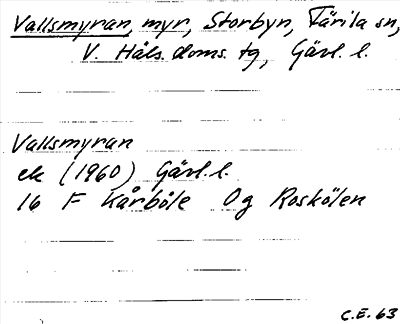 Vallsmyran, myr, Storbyn, Färila sn,
V. Häls. doms. tg, Gävl. l.
Vallsmyran
ek (1960) Gävl. l.
16 F Kårböle Og Roskölen
C.E. 63